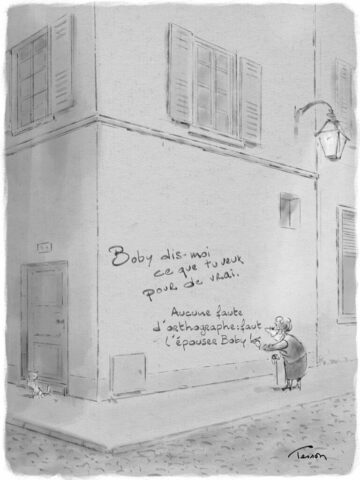 Boby dis-moi
ce que tu veux
pour de vrai.
Aucune faute
d'orthographe: faut
l'épouser Boby
Tesson